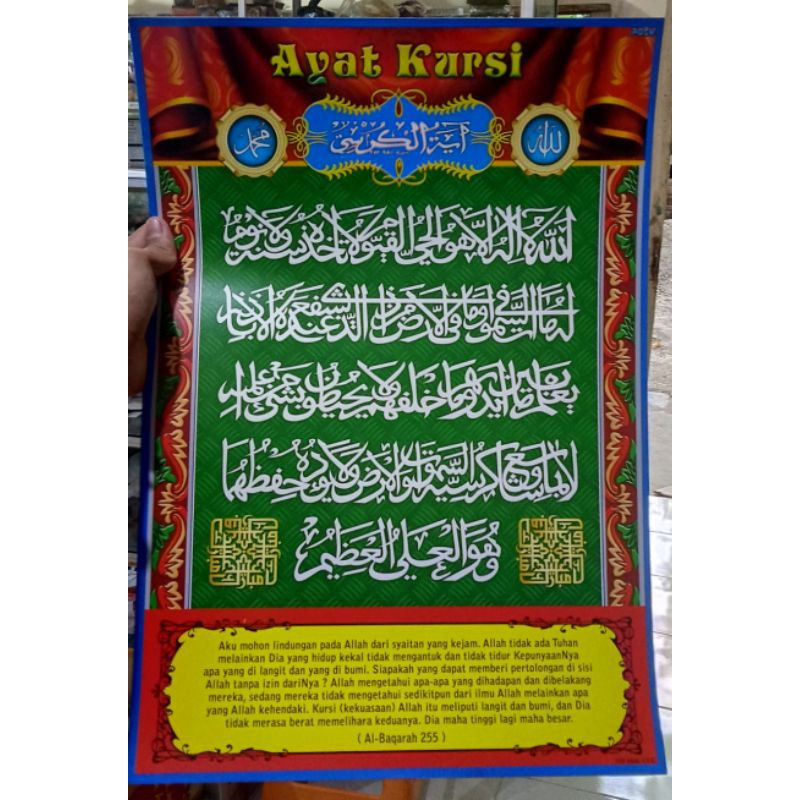 Ayat Kursi
محمد
آية الكرسي
الله
الله لا إله إلا هو الحي القيوم لا تأخذه سنة ولا نوم
له ما في السموات وما في الأرض من ذا الذي يشفع عنده إلا بإذنه
يعلم ما بين أيديهم وما خلفهم ولا يحيطون بشيء من علمه إ
لا بما شاء وسع كرسيه السموات والأرض ولا يؤده حفظهما
وهو العلي العظيم
Aku mohon lindungan pada Allah dari syaitan yang kejam. Allah tidak ada Tuhan
melainkan Dia yang hidup kekal tidak mengantuk dan tidak tidur KepunyaanNya
apa yang di langit dan yang di bumi. Siapakah yang dapat memberi pertolongan di sisi
Allah tanpa izin dariNya ? Allah mengetahui apa-apa yang dihadapan dan dibelakang
mereka, sedang mereka tidak mengetahui sedikitpun dari ilmu Allah melainkan apa
yang Allah kehendaki. Kursi (kekuasaan) Allah itu meliputi langit dan bumi, dan Dia
tidak merasa berat memelihara keduanya. Dia maha tinggi lagi maha besar.
( Al-Baqarah 255 )